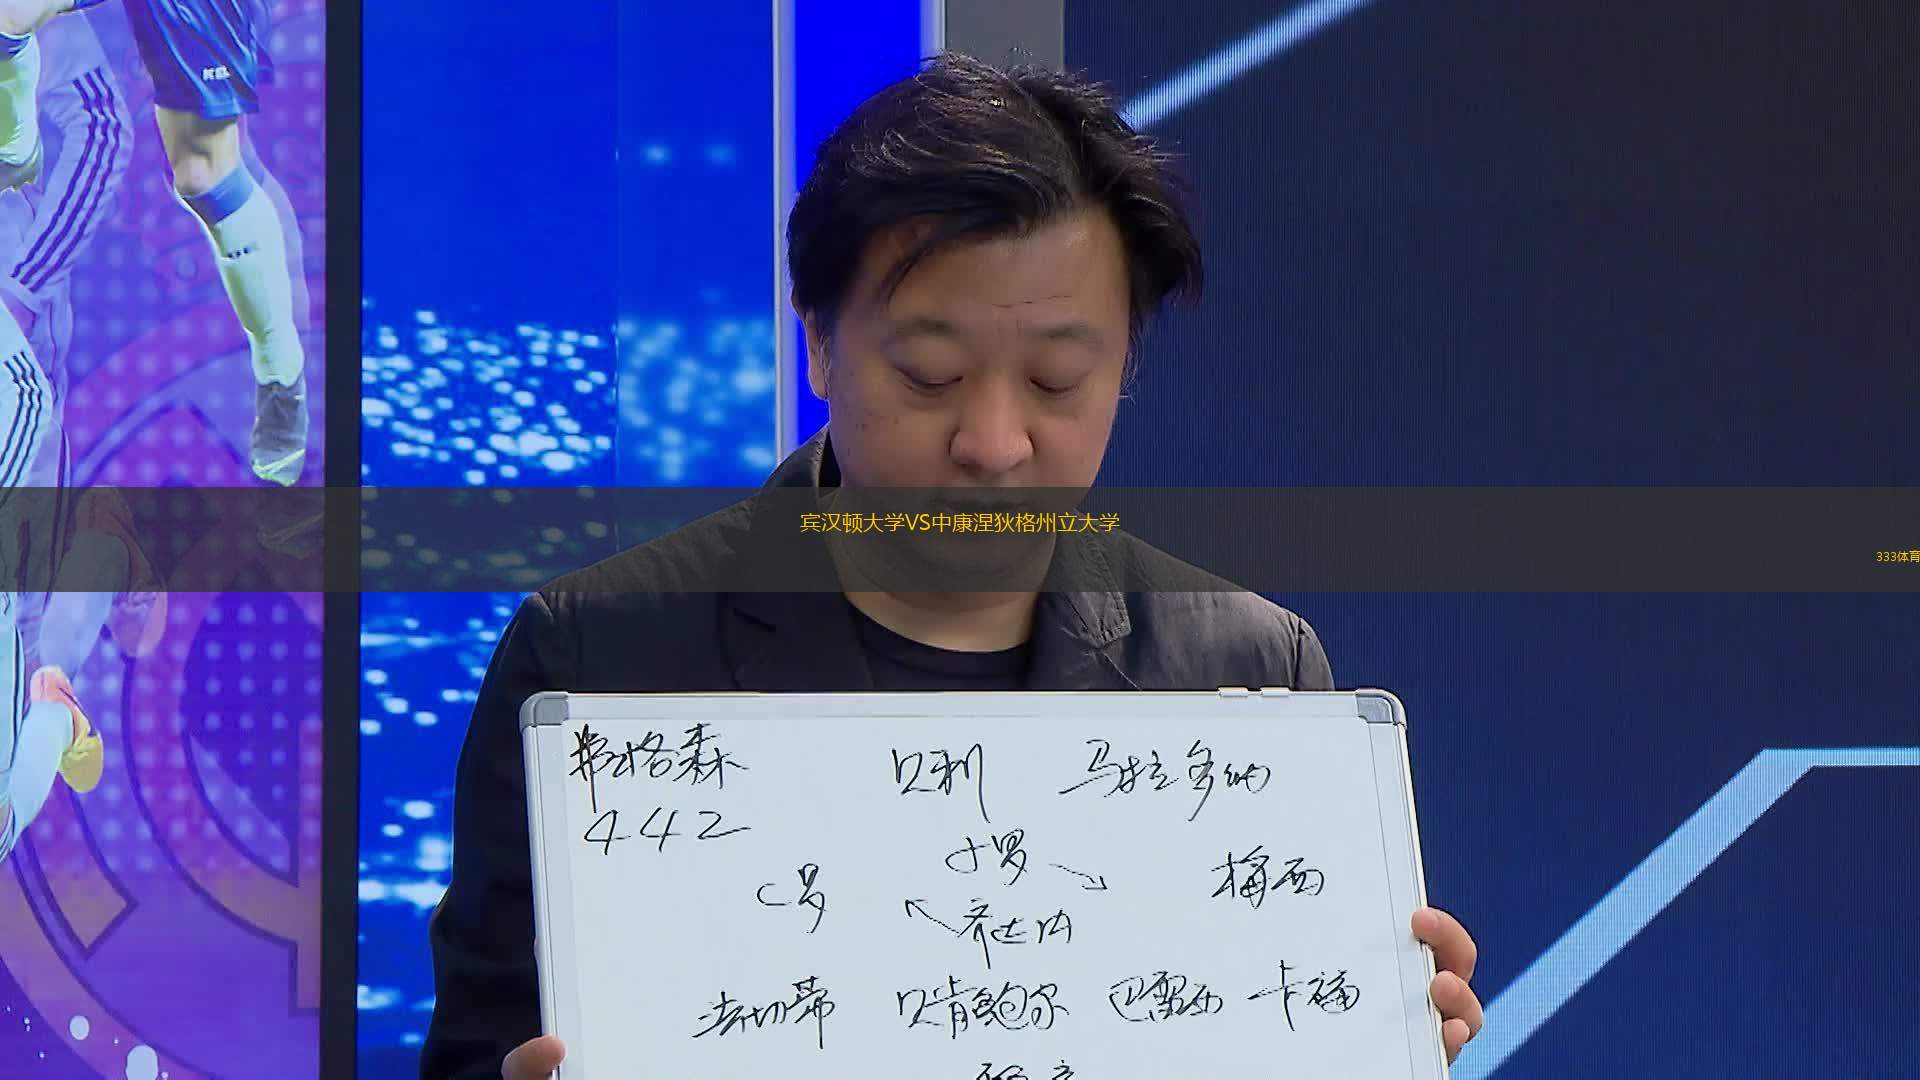 宾汉顿大学VS中康涅狄格州立大学
333体育
弗格森 贝利 马拉多纳
442
小罗
C罗 梅西
齐达内
法切蒂 贝肯鲍尔 巴雷西 卡福